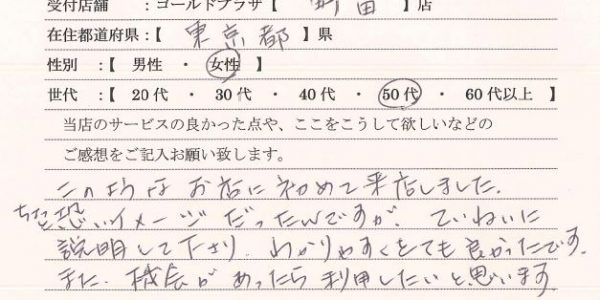 受付店舗 :ゴールドプラザ【 町田 】店
在住都道府県:【 東京都 】県
性別 :【 男性 ・ 女性 】
世代 :【 20代 ・ 30代 ・ 40代 ・ 50代 ・ 60代以上 】
当店のサービスの良かった点や、ここをこうして欲しいなどの
ご感想をご記入お願い致します。
このようなお店に初めて来店しました。
ちょっと恐いイメージだったんですが、ていねいに
説明して下さり、わかりやすくとても良かったです。
また、機会があったら利用したいと思います。